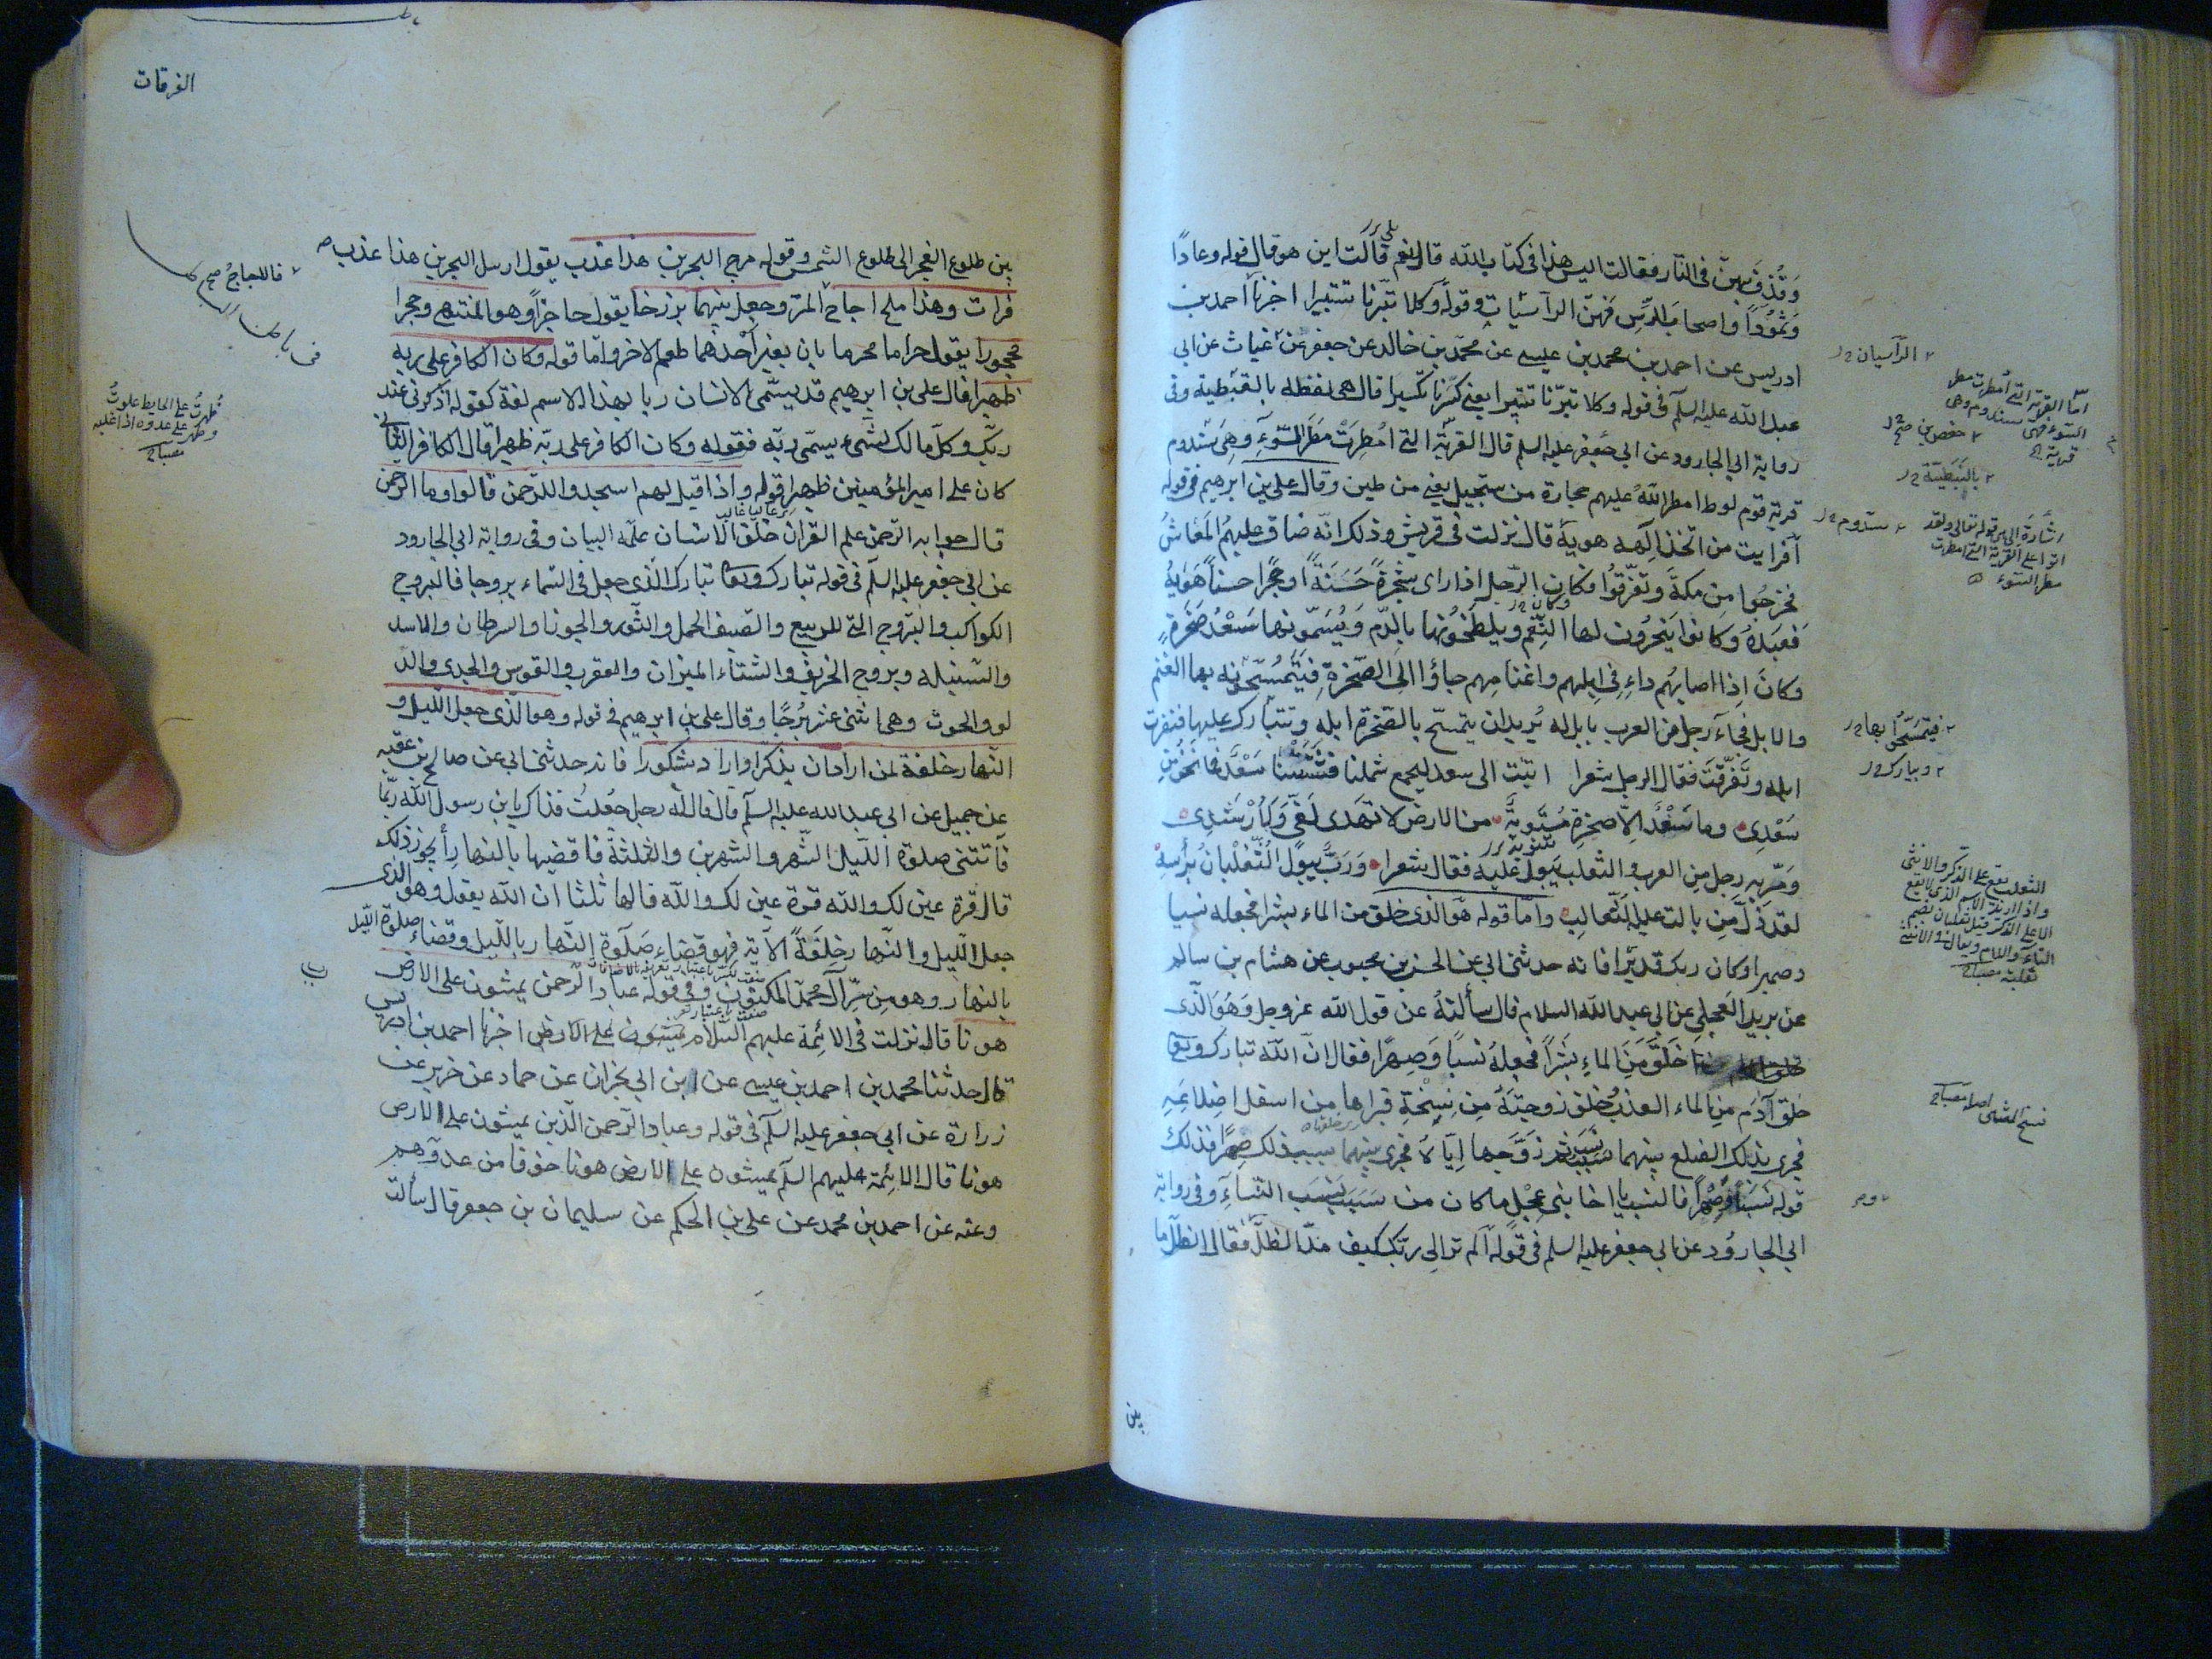 وَقُذِفَ بهنّ فى النّار فقالت اليس هذا فى كتاب الله قال نعم قالت اين هو قال قوله وعادًا
وَثمودًا واصحاب الرّسِ فهنّ الرآسيات وقوله وكلا تبّرنا تتبيرا اخبرنا احمد بن
ادريس عن احمد بن محمد بن عيسى عن محمّد بن خالد عن جعفر عن غياث عن ابى
عبد الله عليه السلم فى قوله وكلا تبّرنا تتبيرا يعنى كسّرنا تكسيرا قال هى لفظه بالقبطية وفى
رواية ابى الجارود عن ابى جعفر عليه السلم قال القرية التى امْطِرَتْ مَطَرَ السّوءِ وهِىَ سَدوم
قرية قوم لوط امطر الله عليهم حجارة من سجيل يعنى من طين وقال على بن ابرهيم فى قوله
أفرايت من اتخذ الهه هويه قال نزلت فى قريش وذلك انّه ضاق عليهم المَعَاشُ
فخرجُوا مِن مكةَ وتَفَرّقُوا فكان الرّجل اذا راى شجرةً حَسَنَةً اوحجرًا حسناً هَوَاهُ
فَعبَدهُ وكانوا يَنحرُون لها النّعم ويلطخُونها بالدّم وَيُسَمّونها سَعْدُ صَخرَةٍ
وكانَ اِذا اصابهُم داء فى ابلهم واغنامهم جاؤا الى الصّخرة فيتَمسّحونه بها الغنم
والابل فجاءَ رجل من العرب بابل له يُريد ان يتمسّح بالصّخرة ابله وتتبارك عليها فنفرت
ابله وتَفَرّقت فقال الرجل شعرا اتيت الى سعد ليجمع شملنا فشتّتنا سَعْد فما نحنُ مِن
سَعْدى وما سَعْدُ الّا صخرة مُسَتَويّة من الارض لا تهدى لغىّ ولا رشدى
وَمرّ به رجل مِن العرب والثعلب يَبول عليه فقال شعرا وَرَبٌّ يَبول الثّعْلبانُ برأسهِ
لقد ذَلّ مَن بالت عليه الثّعالب وامّا قوله هو الذى خلق من الماء بشرا فجعله نسبا
وصهرا وكان ربك قديرًا فانه حدثنى ابى عن الحسن بن محبوب عن هشام بن سالم
عن بريد العجلى عن ابى عبد الله السلام قال سألتهُ عن قول الله عز وجل وَهُوَ الّذى
خَلَقَ مِنَ الماءِ بَشَراً فجعلهُ نسبًا وَصِهرًا فقال انّ الله تبارك وتعا
خلق آدَم مِن الماء العذب وخلق زوجتَهُ مِن سِنْخةِ فبراها مِن اسفل اضلاعِهِ
فجرى بذلك الضلع بينهما سبب نسب ثم زوّجها ايّاهُ فجرى بينهما بسبب ذلك صِهرًا فذلك
قوله نَسَبًا وَصِهْراً فالنسب يا اخا بنى عِجْل ما كان من سَبَبَ نَسَب النّساء وفى رواية
ابى الجارُود عن ابى جعفر عليه السلم فى قوله الم تر الى ربّك كيف مَدّ الظلّ فقال الظلّ ما
الرّآسيان
حفص بن
بالنّبطيّة
سدوم
فيتمسّحُوا بها
وببارك
بين
الفرقات
بين طلوع الفجر الى طلوع الشمس وقوله مرج البحرين هذا عذب يقول ارسل البحرين هذا عذب
فرات وهذا ملح اجاج المرّ وجعل بينهما برزخا يقول حاجزاً وهو المنتهى وحجرا
محجورا يقول حراما محرما بان يغير احدهما طعم الاخر وامّا قوله وكان الكافر على ربه
ظهيرا قال على بن ابرهيم قد يسمّى الانسان ربا بهذا الاسم لغة كقوله اذكرنى عند
ربّك وكلّ مالك لشىء يسمّى ربّه فقوله وكان الكافر على ربّه ظهيرا قال الكافر الثانى
كان على امير المؤمنين ظهيرا قوله واذا قيل لهم اسجدوا للرّحمن قالوا وما الرحمن
قال جوابه الرّحمن علم القران خلق الانسان علّمه البيان وفى رواية ابى الجارود
عن ابى جعفر عليه السلم فى قوله تبارك وتعا تبارك الذى جعل فى السّماء بروجا فالبروج
الكواكب والبروج التى للربيع والصّيف الحمل والثّور والجوزا والسرطان والاسد
والسّنبله وبروج الخريف والشتاء الميزان والعقرب والقوس والجدى والد
لو والحوت وهى اثنى عشر بُرجًا وقال على بن ابرهيم فى قوله وهو الذى جعل الليل و
النّهار خلفة لمن اراد ان يذكّر او اراد شكورا فانه حدثنى ابى عن صالح بن عقبه
عن جميل عن ابى عبد الله عليه السلم قال قال له رجل جُعلتُ فداك يا بن رسول الله ربّما
فاتتنى صلوة اللّيل الشّهر والشهرين والثلثة فاقضيها بالنهار أيجوز ذلك
قال قرة عين لك والله قرة عين لك والله قالها ثلثا ان الله يقول وهو الذى
جعل اللّيل والنّهار خِلفَةً الآية فهو قضاء صَلوة النّهار باللّيل وقضاء صلوة الليل
بالنهار وهو مِن سِرّ آل محمّد المكنون وفى قوله عباد الرّحمن يمشون على الارض
هونا قال نزلت فى الائِمّة عليهم السّلام يمشون على الارض اخبرنا احمد بن ادريس
قال حدثنا محمد بن احمد بن عيسى عن ابن ابى نجران عن حماد عن حريز عن
زرارة عن ابى جعفر عليه السلم فى قوله وعباد الرّحمن الّذين يمشون على الارض
هونا قال الائِمّة عليهم السلم يمشون على الارض هونا خوفا من عدوّهم
وعنه عن احمد بن محمد عن على بن الحكم عن سليمان بن جعفر قال سألت
ظهرتُ على الحايط علوتُ
وظهر على عدوه اذا غلبه
مصباح